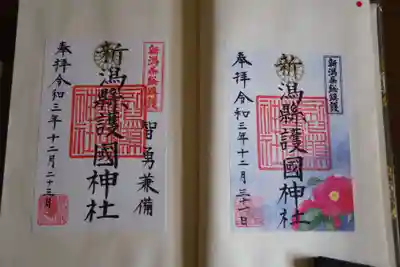 新潟縣総鎮護
智勇兼備
新潟縣護國神社
奉拝令和三年十二月二十三日
新潟縣総鎮護
新潟縣護國神社
奉拝令和三年十二月三十一日